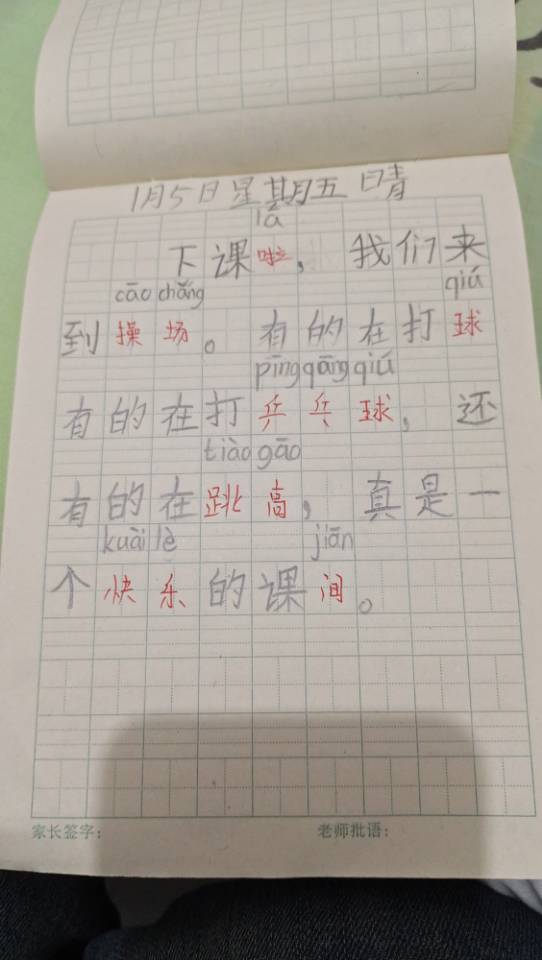 1月5日星期五 晴
lā
下课啦，我们来
cāo chǎng qiú
到操场。有的在打球
pīng qāng qiú
有的在打乒乓球，还
tiào gāo
有的在跳高，真是一
kuài lè jiān
个快乐的课间。
家长签字： 老师批语：